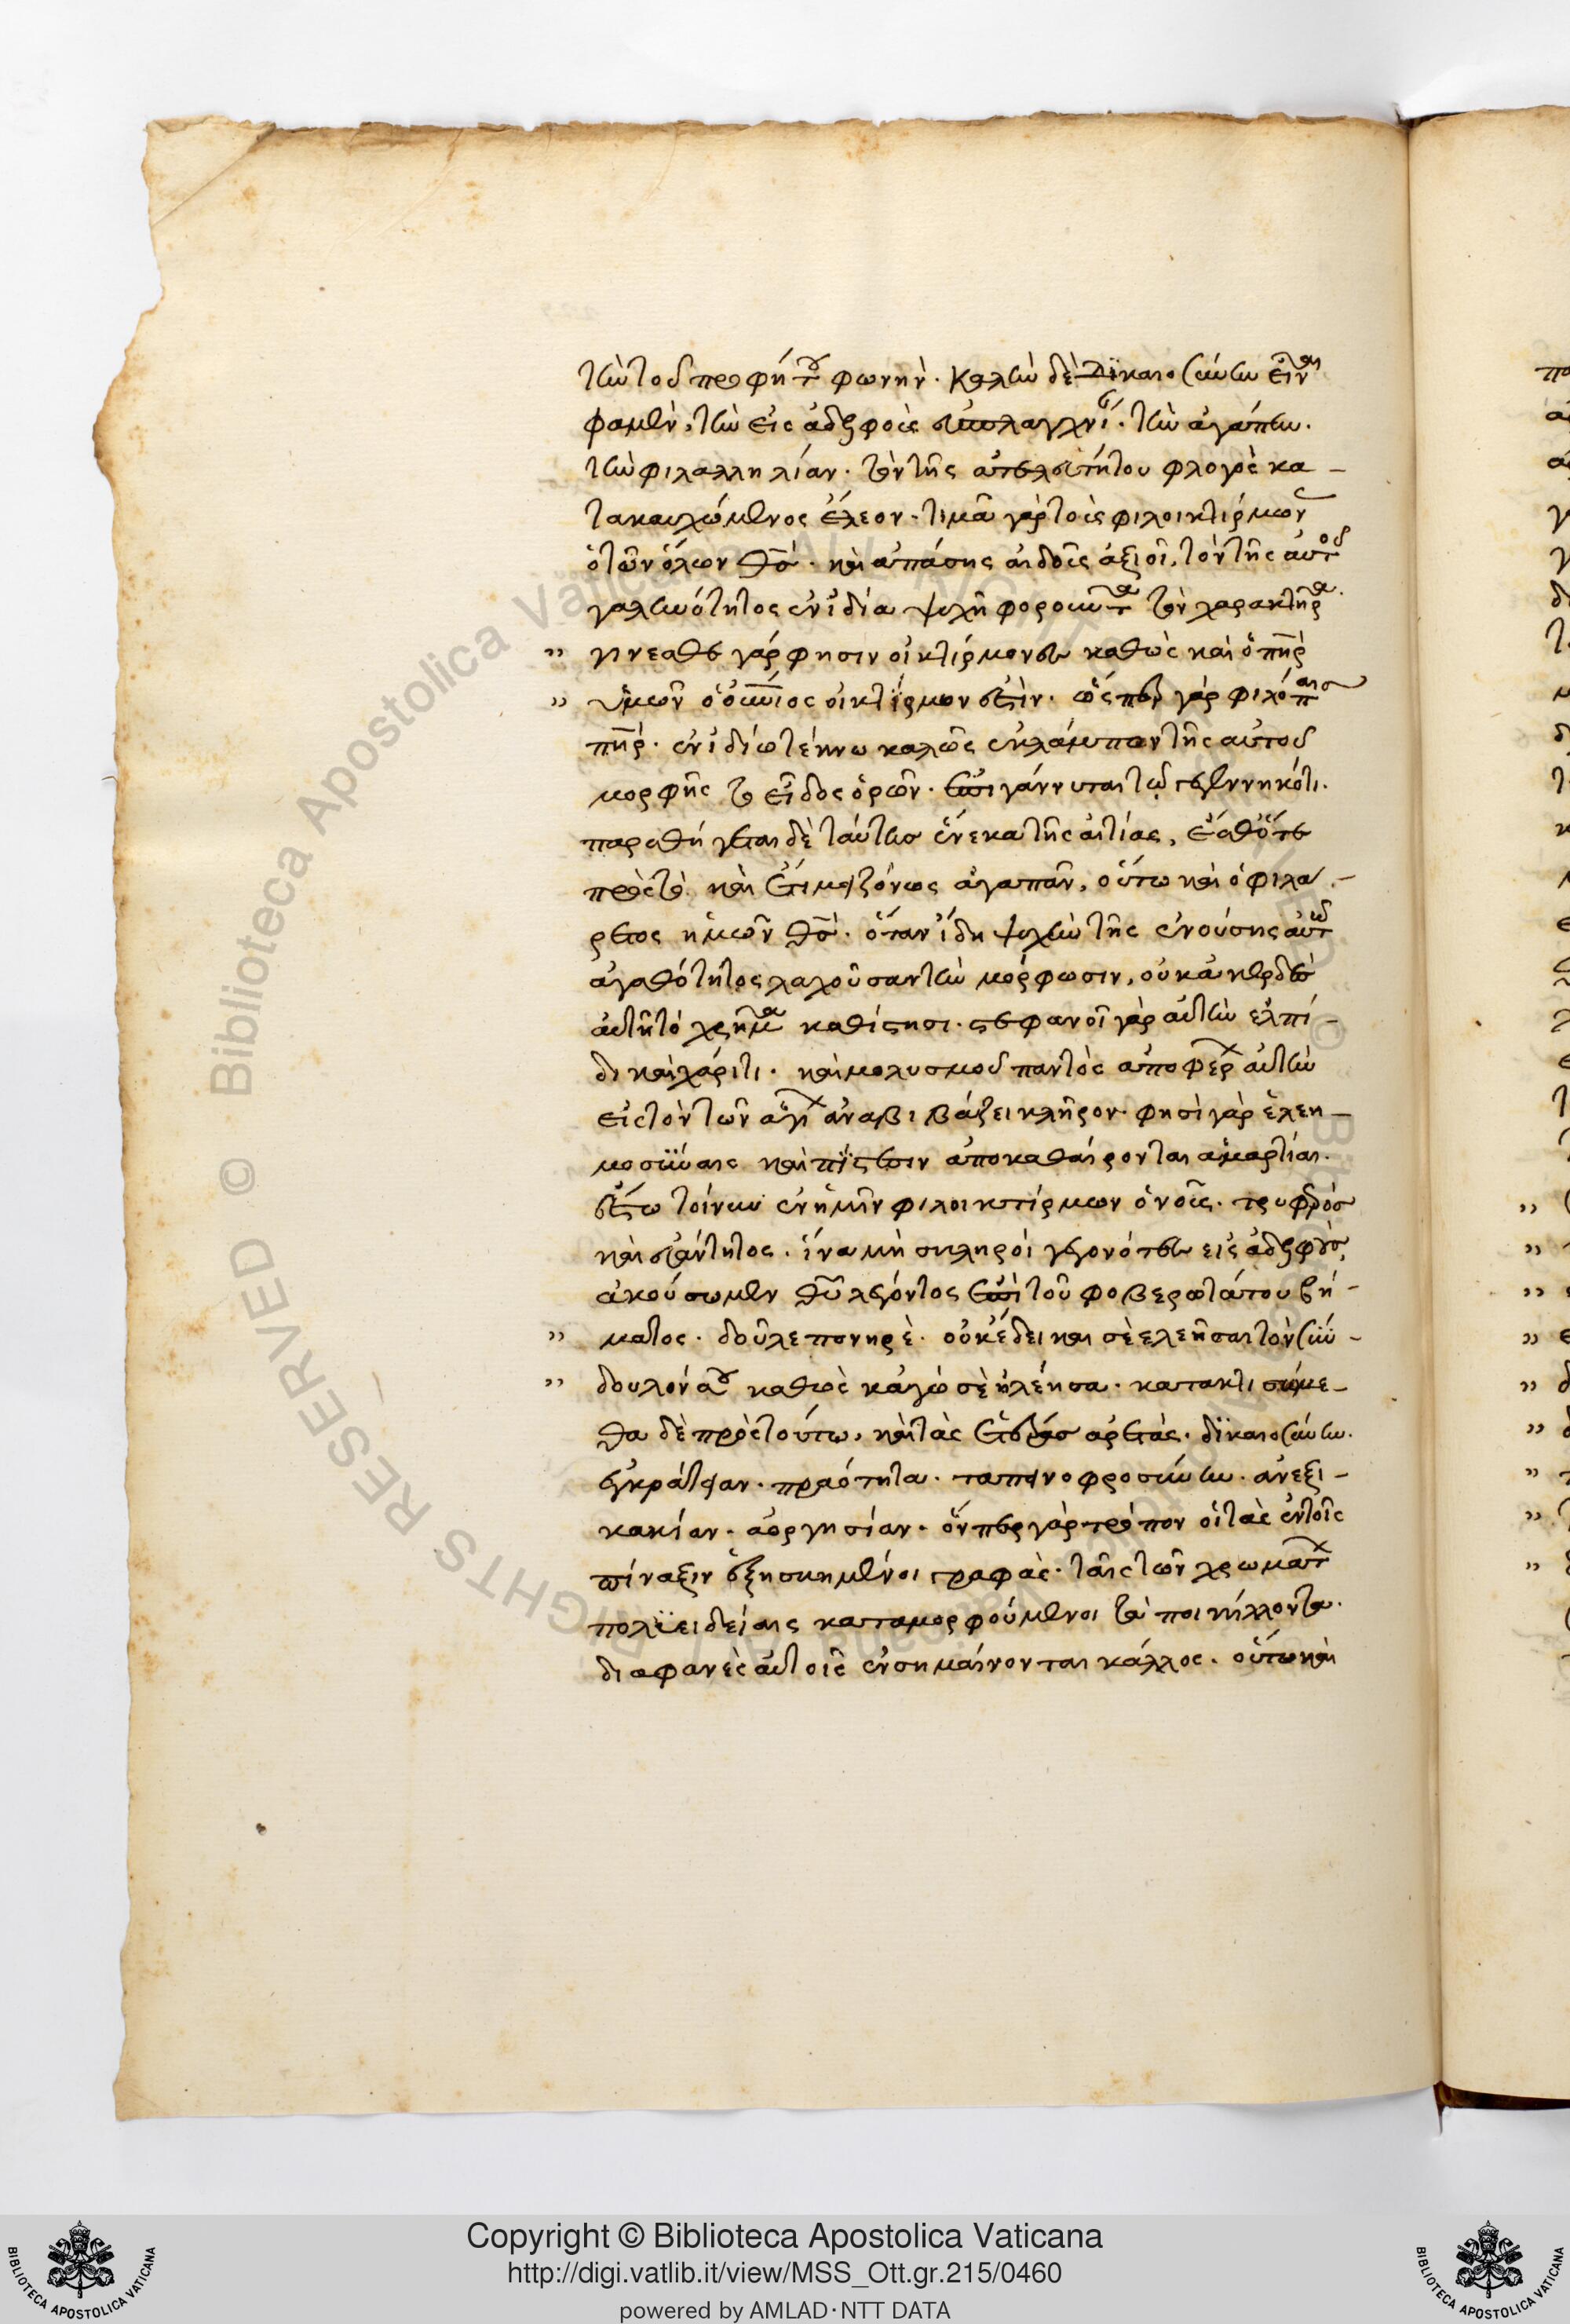 τὴν τοῦ προφήτου φωνήν. καλὴν δὲ δικαιοσύνην εἶναι
φαμὲν, τὴν εἰς ἀδελφοὺς εὐσπλαγχνίαν. τὴν ἀγάπην.
τὴν φιλαλληλίαν. τὸν τῆς ἀτελευτήτου φλογὸς κα-
τακαυχώμενος ἔλεον. τιμᾶ γὰρ τοὺς φιλοικτίρμων
ὁ τῶν ὅλων θσ. καὶ ἁπάσης αἰδοῦς ἀξιοῖ, τὸν τῆς αὐτοῦ
γαληνότητος ἐν ἰδία ψυχῆ φοροῦντα τὸν χαρακτῆρα.
" γίνεσθε γάρ φησιν οἰκτίρμονες καθὼς καὶ ὁ πηρ
" ὑμῶν ὁ οὐνιος οἰκτίρμων ἐστὶν. ὥσπερ γὰρ φιλόπαις
πηρ. ἐν ἰδίω τέκνω καλῶς ἐκλάμπον τῆς αὐτοῦ
μορφῆς τὸ εἶδος ὁρῶν. ἐπιγάννυται τῶ γεγεννηκότι.
παραθήγεται δὲ ταύτης ἕνεκα τῆς αἰτίας, ἔσθότε
πρὸς τὸ καὶ ἔτι μειζόνως ἀγαπᾶν, οὕτω καὶ ὁ φιλα-
ρετος ἡμῶν θσ. ὅταν ἴδη ψυχὴν τῆς ἐνούσης αὐτῶ
ἀγαθότητος λαχοῦσαν τὴν μόρφωσιν, οὐκ ἀκερδὲς
αὐτῆ τὸ χρῆμα καθίστησι. στεφανοῖ γὰρ αὐτὴν ἐλπί-
δι καὶ χάριτι. καὶ μολυσμοῦ παντὸς ἀποφέρων αὐτὴν
εἰς τὸν τῶν ἁγίων ἀναβιβάζει κλῆρον. φησὶ γὰρ ἐλεη-
μοσύναις καὶ πίστεσιν ἀποκαθαίρονται ἁμαρτίαι.
ἔστω τοίνυν ἐν ἡμῖν φιλοικτίρμων ὁ νοῦς. τρυφερὸς
καὶ εὐάντητος. ἵνα μὴ σκληροὶ γεγονότες εἰς ἀδελφοὺς,
ἀκούσωμεν θυ λέγοντος ἐπὶ τοῦ φοβερωτάτου βή-
" ματος. δοῦλε πονηρὲ. οὐκ ἔδει καὶ σὲ ἐλεῆσαι τὸν σύν-
" δουλόν σου καθὼς κἀγὼ σὲ ἠλέησα. κατακτησώμε-
θα δὲ πρὸς τούτω, καὶ τὰς ἑτέρας ἀρετὰς. δικαιοσύνην.
ἐγκράτειαν. πραότητα. ταπεινοφροσύνην. ἀνεξι-
κακίαν. ἀοργησίαν. ὅνπερ γὰρ τρόπον οἱ τὰς ἐν τοῖς
πίναξιν ἐξησκημένοι γραφὰς. ταῖς τῶν χρωμάτων
πολυειδείαις καταμορφούμενοι τὰ ποικίλλοντα.
διαφανὲς αὐτοῖς ἐνσημαίνονται κάλλος. οὕτω καὶ
Copyright © Biblioteca Apostolica Vaticana
http://digi.vatlib.it/view/MSS_Ott.gr.215/0460
powered by AMLAD·NTT DATA